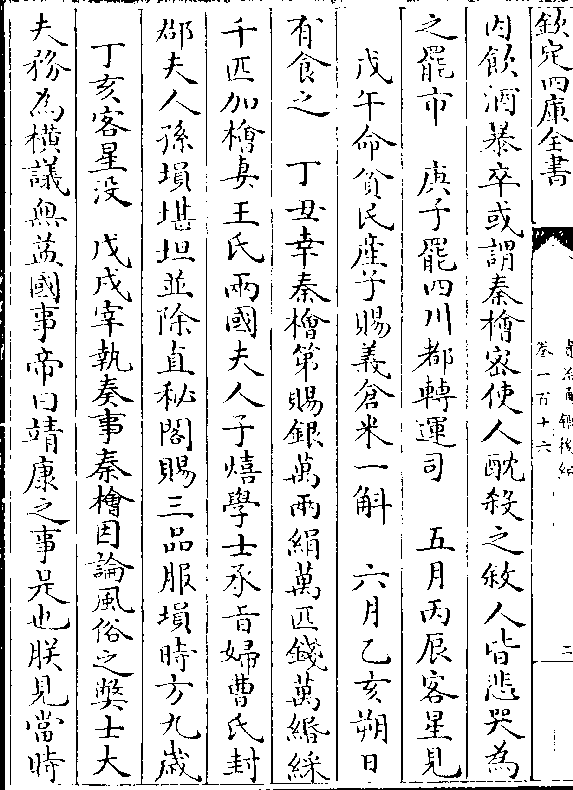 欽定四庫全書
資治通鑑後編
卷一百十六
二
内飲酒暴卒或謂秦檜密使人酖殺之敘人皆悲哭為
之罷市　庚子罷四川都轉運司　五月丙辰客星見
戊午命貧民產子賜義倉米一斛　六月乙亥朔日
有食之　丁丑幸秦檜第賜銀萬兩絹萬匹錢萬緡綵
千匹加檜妻王氏兩國夫人子熺學士承旨婦曹氏封
郄夫人孫塤堪坦並除直秘閣賜三品服塤時方九歲
丁亥客星没　戊戌宰執奏事秦檜因論風俗之獘士大
夫務為橫議無益國事帝曰靖康之事是也朕見當時